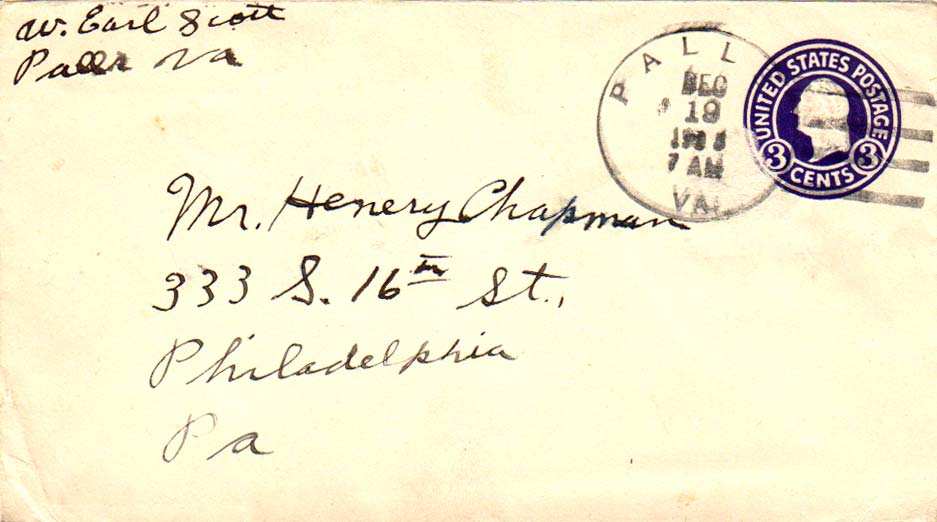 W. Earl Scott
Palls Va
PALLS
DEC
19
7 AM
VA.
UNITED STATES POSTAGE
3 CENTS 3
Mr. Henery Chapman
333 S. 16th St.,
Philadelphia
Pa